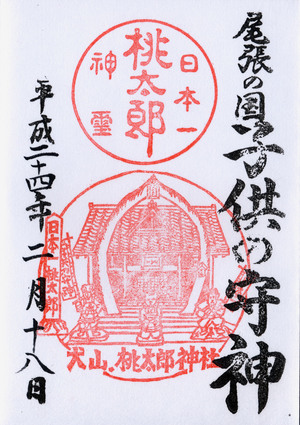 尾張の国子供の守神
日本一
桃太郎
神霊
犬山.桃太郎神社
平成二十四年二月十八日